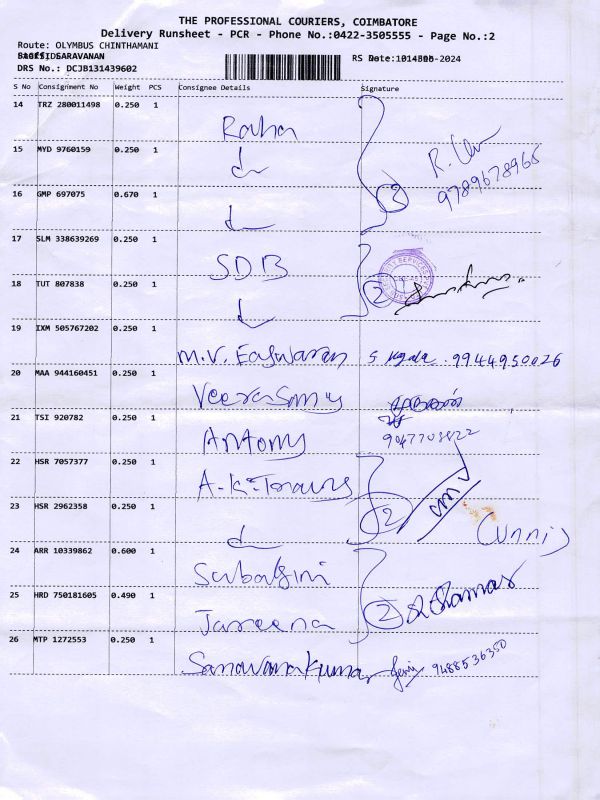 THE PROFESSIONAL COURIERS, COIMBATORE
Delivery Runsheet - PCR - Phone No.:0422-3505555 - Page No.:2
Route: OLYMBUS CHINTHAMANI
SARAVANAN
RS Date: -2024
DRS No.: DCJB131439602
S No Consignment No Weight PCS Consignee Details Signature
14 TRZ 280011498 0.250 1
15 MYD 9760159 0.250 1
R.
9789678965
16 GMP 697075 0.670 1
3
17 SLM 338639269 0.250 1 SDB
18 TUT 807838 0.250 1
2
19 IXM 505767202 0.250 1 M.V. Easwaran 9944950026
20 MAA 944160451 0.250 1 Veerasamy
21 TSI 920782 0.250 1 Antony
22 HSR 7057377 0.250 1 A.K.
23 HSR 2962358 0.250 1
2
(Unni)
24 ARR 10339862 0.600 1
25 HRD 750181605 0.490 1 Jareena
2
26 MTP 1272553 0.250 1 Saravanakumar 9488536350